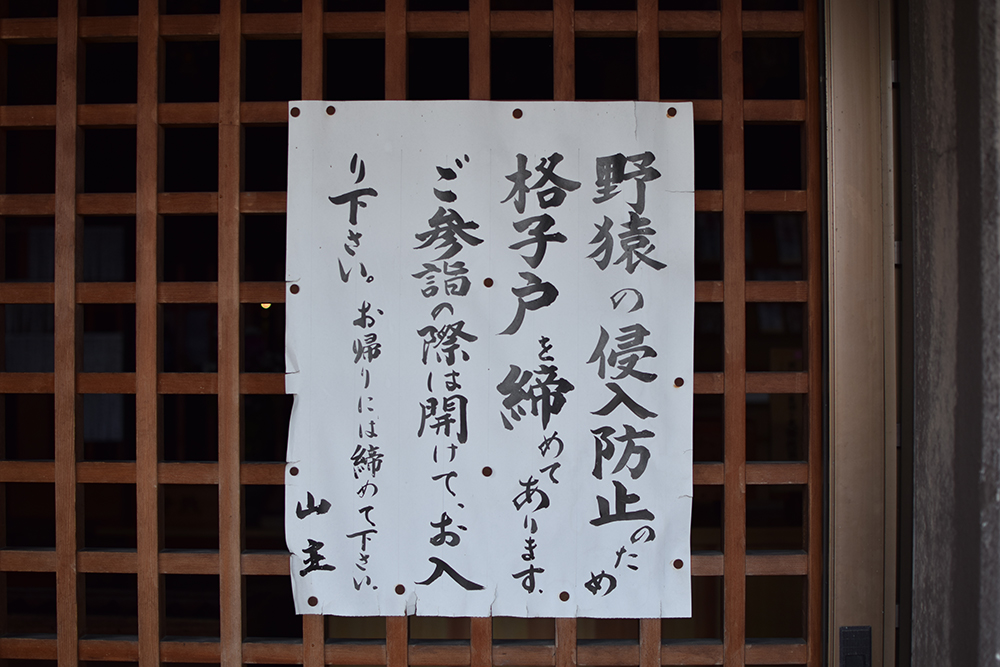 野猿の侵入防止のため
格子戸を締めてあります。
ご参詣の際は開けて、お入
り下さい。お帰りには締めて下さい。
山主